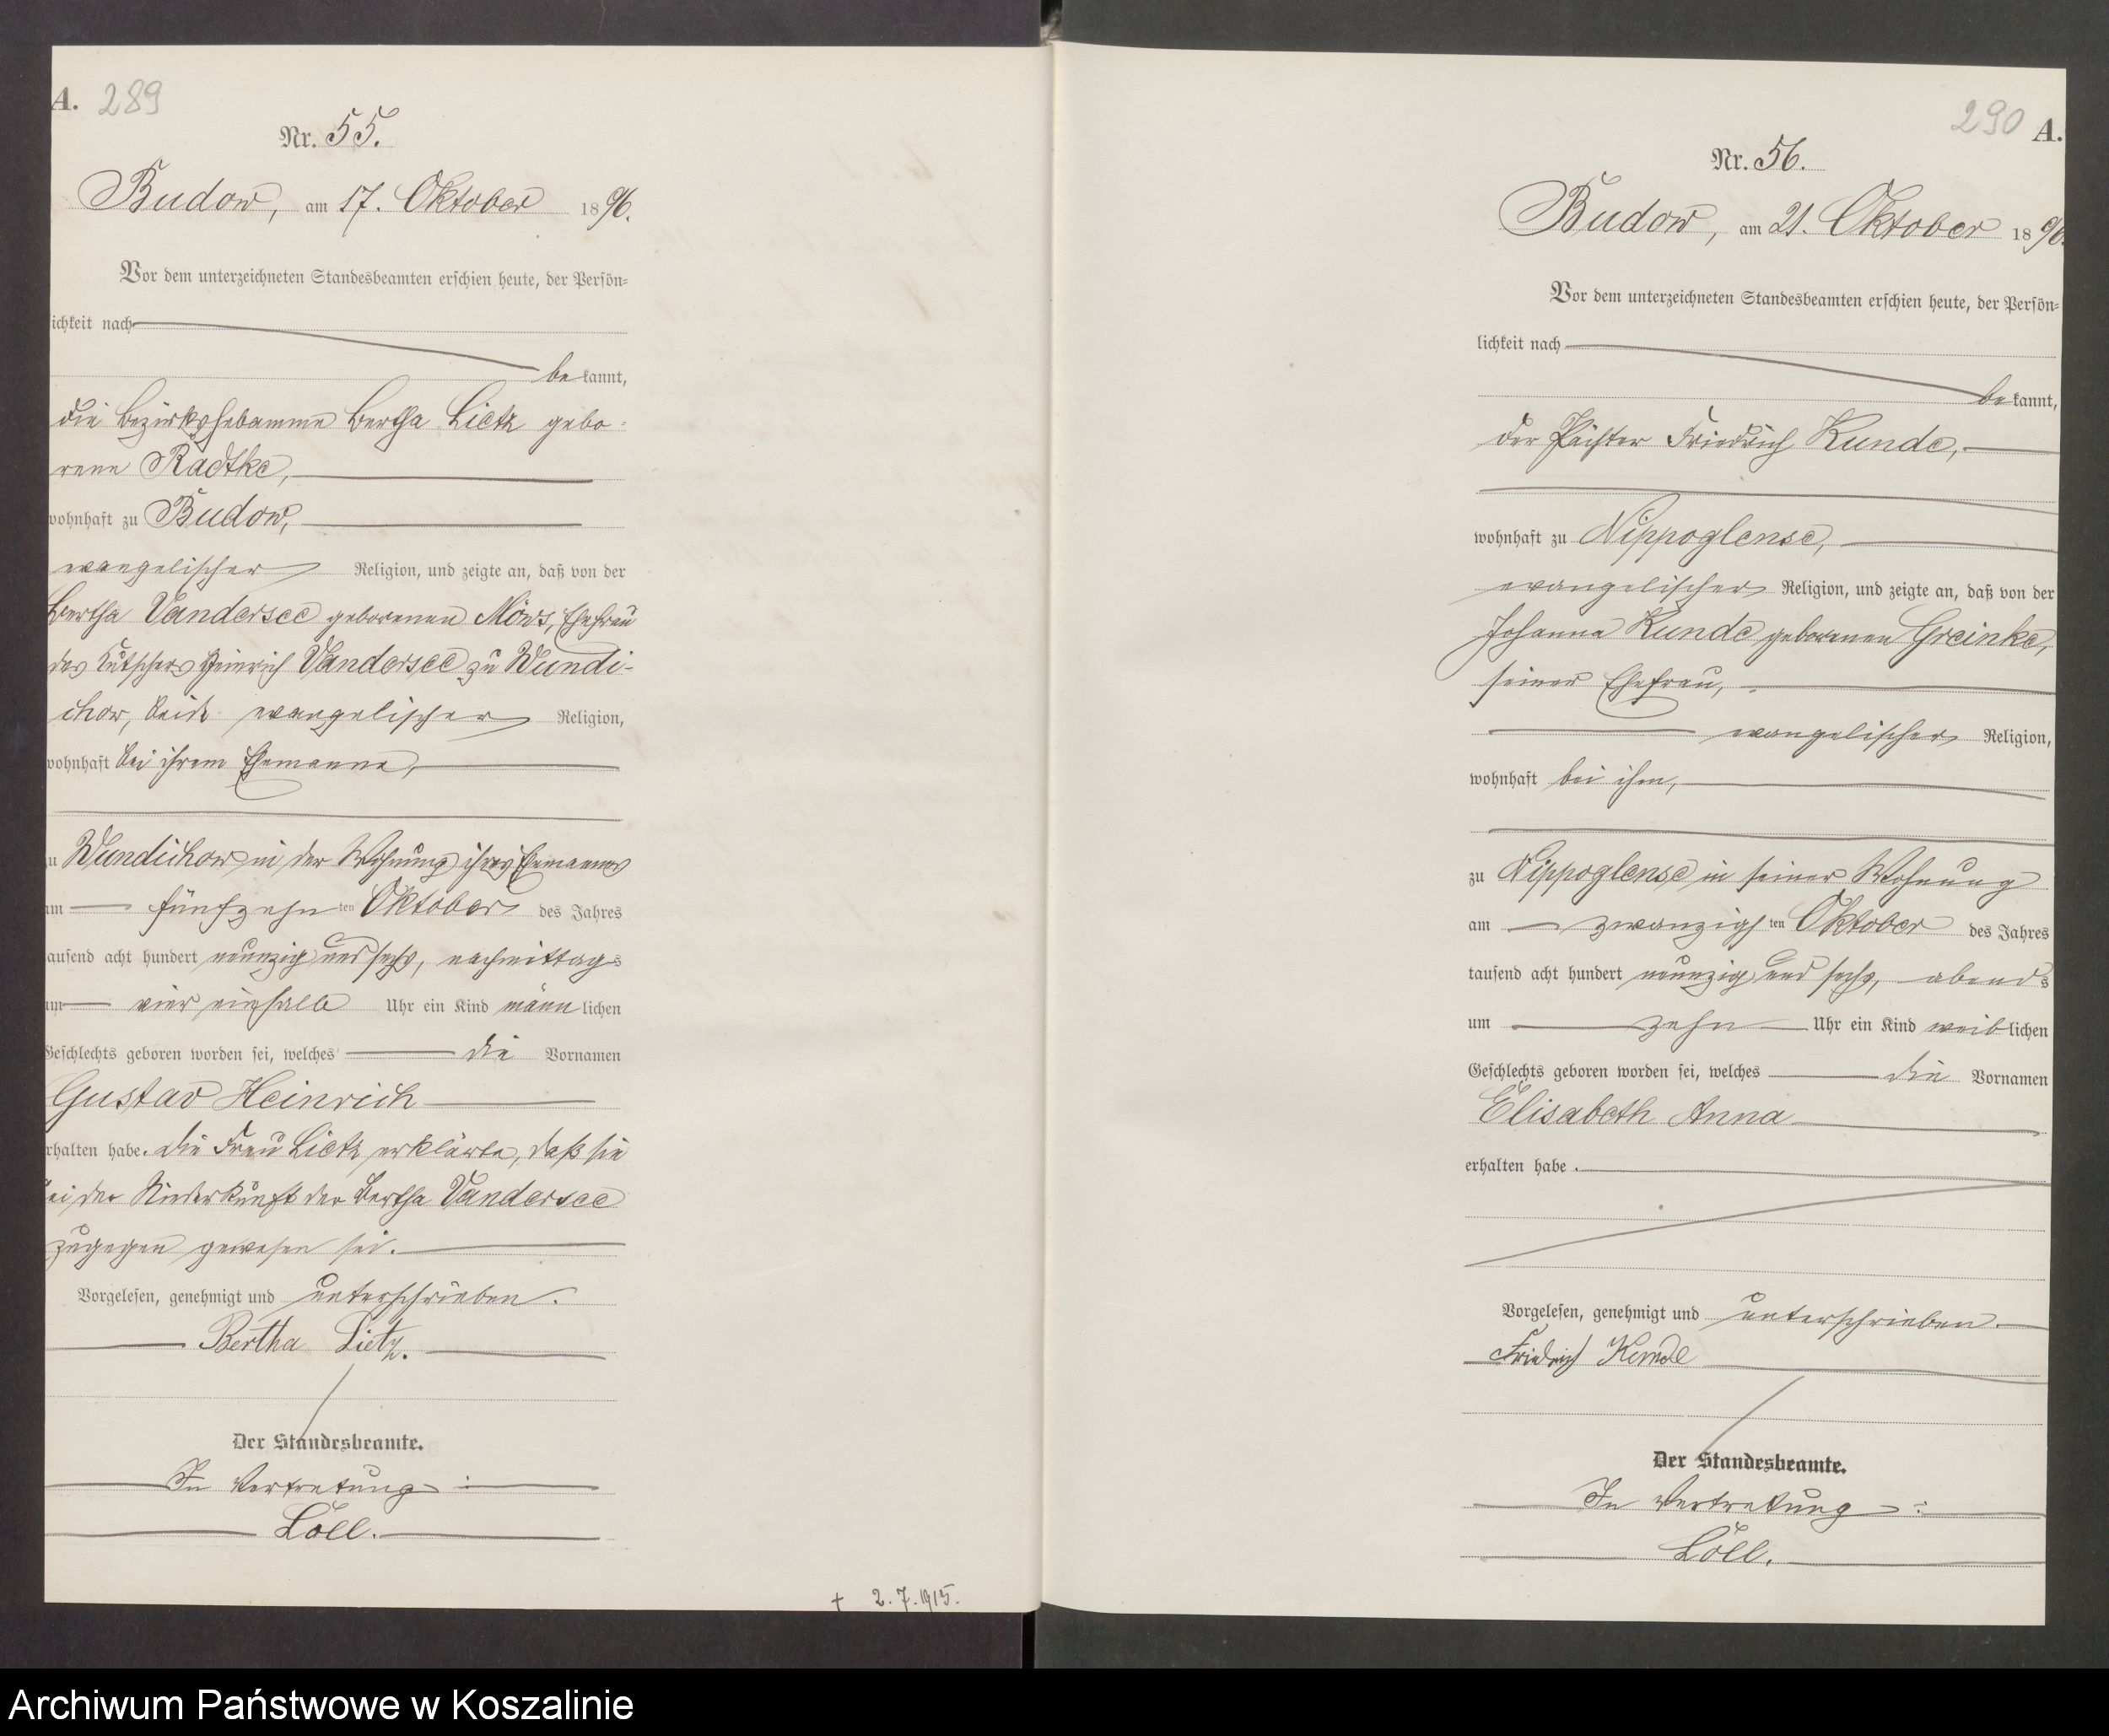 A. 289
Nr. 55.
Budow, am 17. Oktober 1896.
Vor dem unterzeichneten Standesbeamten erschien heute, der Persön-
ichkeit nach
be kannt,
die Bezirkshebamme Bertha Lietz gebo-
rene Radtke,
wohnhaft zu Budow,
evangelischer Religion, und zeigte an, daß von der
Bertha Vandersee geborenen Möws, Ehefrau
des Kutschers Heinrich Vandersee zu Wundi-
chow, beide evangelischer Religion,
wohnhaft bei ihrem Ehemanne,
zu Wundichow in der Wohnung ihres Ehemannes
am fünfzehn ten Oktober des Jahres
tausend acht hundert neunzig und sechs, nachmittags
um vier einhalb Uhr ein Kind männ lichen
Geschlechts geboren worden sei, welches die Vornamen
Gustav Heinrich
erhalten habe. Die Frau Lietz erklärte, daß sie
bei der Niederkunft der Bertha Vandersee
zugegen gewesen sei.
Vorgelesen, genehmigt und unterschrieben.
Bertha Lietz.
Der Standesbeamte.
In Vertretung:
Löll.
† 2.7.1915.
290 A.
Nr. 56.
Budow, am 21. Oktober 1896.
Vor dem unterzeichneten Standesbeamten erschien heute, der Persön-
lichkeit nach
be kannt,
der Pächter Friedrich Kunde,
wohnhaft zu Nippoglense,
evangelischer Religion, und zeigte an, daß von der
Johanna Kunde geborenen Greinke,
seiner Ehefrau,
evangelischer Religion,
wohnhaft bei ihm,
zu Nippoglense in seiner Wohnung
am zwanzigs ten Oktober des Jahres
tausend acht hundert neunzig und sechs, abends
um zehn Uhr ein Kind weib lichen
Geschlechts geboren worden sei, welches die Vornamen
Elisabeth Anna
erhalten habe.
Vorgelesen, genehmigt und unterschrieben.
Friedrich Kunde
Der Standesbeamte.
In Vertretung:
Löll.
Archiwum Państwowe w Koszalinie